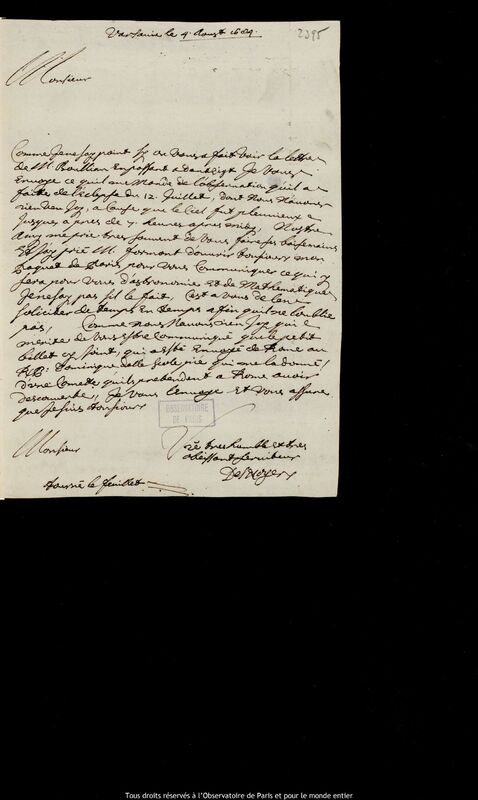 Varsavie le 4. Aoust 1684.
2395
Monsieur
Comme Je ne say point sy on vous a fait voir la lettre
de M. Boulliau En passant a Dantzigt Je vous
Envoye ce qu'il me Mande de l'observation qu'il a
faitte de l'éclypse du 12. Juillet, dont Nous n'avons
rien veu Icy, a Cause que le Ciel fut pluvieux
Jusques apres de 7. heures apres midy. Nostre
Amy me prie tres souvent de vous faire ses baisemains
Et J'ay prié M. Formont d'ouvrir tousjours mon
paquet de Paris, pour vous Communiquer ce qui y
sera pour vous d'astronomie Et de Mathematiques
Je ne say pas s'il le fait, C'est a vous de l'en
soliciter de temps En temps afin qu'il ne l'oublie
pas, Comme nous n'avons rien Icy qui
merite de vous Estre Communiqué que le petit
billet cy Joint, qui a esté Envoyé de Rome au
R.P. Dominique des Escole pie qui me l'a donné
d'une Comette qu'ils pretendent a Rome avoir
descouverte, Je vous l'envoye Et vous assure
que Je suis tousjours
OBSERVATOIRE
DE PARIS
Monsieur
Vre tres humble Et tres
obeissant serviteur
Des Noyers
tournés le feuillet
Tous droits réservés à l'Observatoire de Paris et pour le monde entier